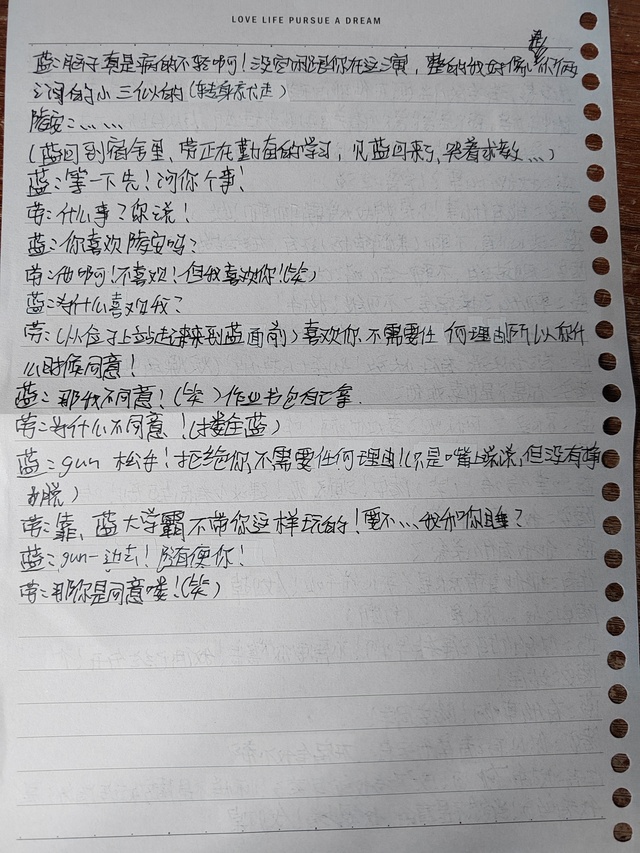 LOVE LIFE PURSUE A DREAM
蓝:脑子真是病的不轻啊!没空陪你在这演,整的我好像是你俩
之间的小三似的(转身就走)
陵安:……
(蓝回到宿舍里,劳正在勤奋的学习,见蓝回来了,哭着求教…)
蓝:等一下先!问你个事!
劳:什么事?你说!
蓝:你喜欢陵安吗?
劳:他啊!不喜欢!但我喜欢你!(笑)
蓝:为什么喜欢我?
劳:(从位子上站起来来到蓝面前)喜欢你,不需要任何理由所以你什
么时候同意!
蓝:那我不同意!(笑)作业书包自己拿.
劳:为什么不同意!(搂住蓝)
蓝:gun 松手!拒绝你,不需要任何理由!(只是嘴上说说,但没有挣
脱)
劳:靠,蓝大学霸不带你这样玩的!要不…我和你睡?
蓝:gun一边去!随便你!
劳:那你是同意喽!(笑)